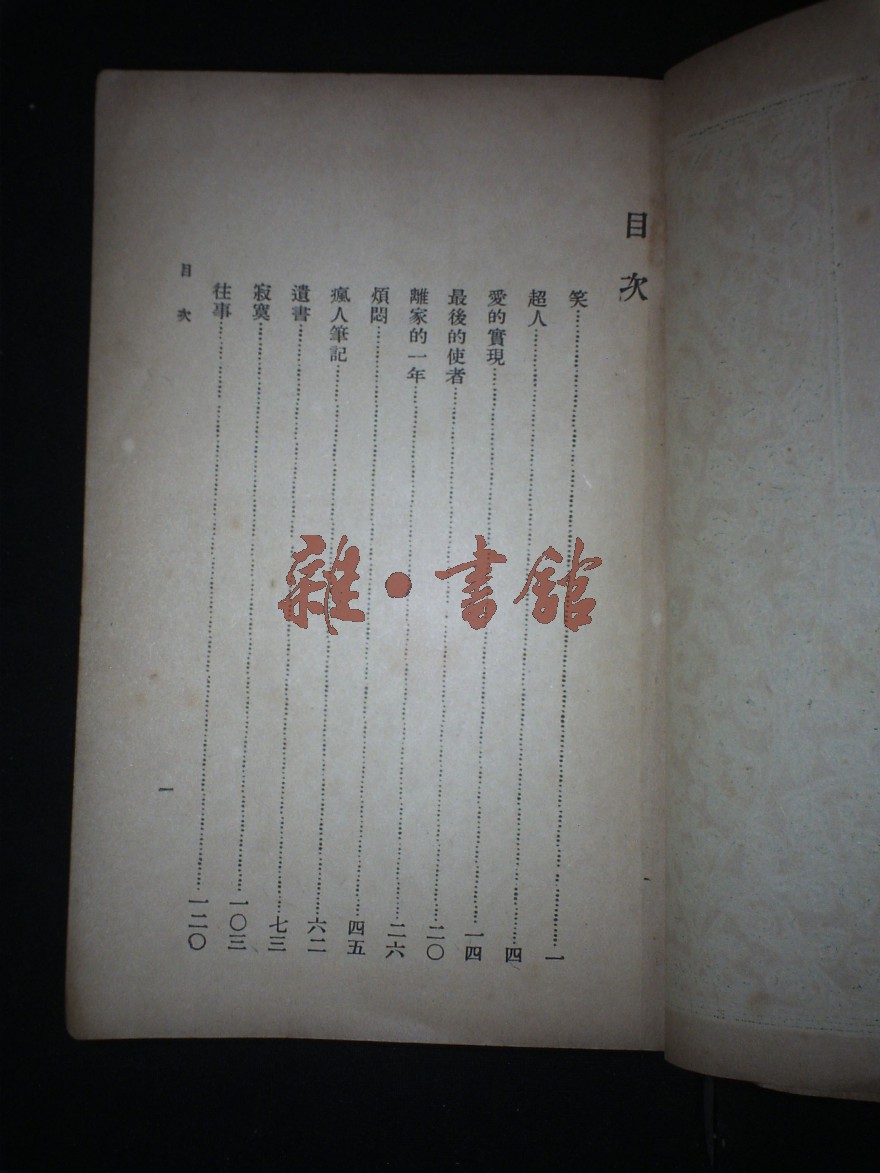 目次
笑……一
超人……四
愛的實現……一四
最後的使者……二〇
離家的一年……二六
煩悶……四五
瘋人筆記……六二
遺書……七三
寂寞……一〇三
往事……一二〇
目次
一
雜·書館